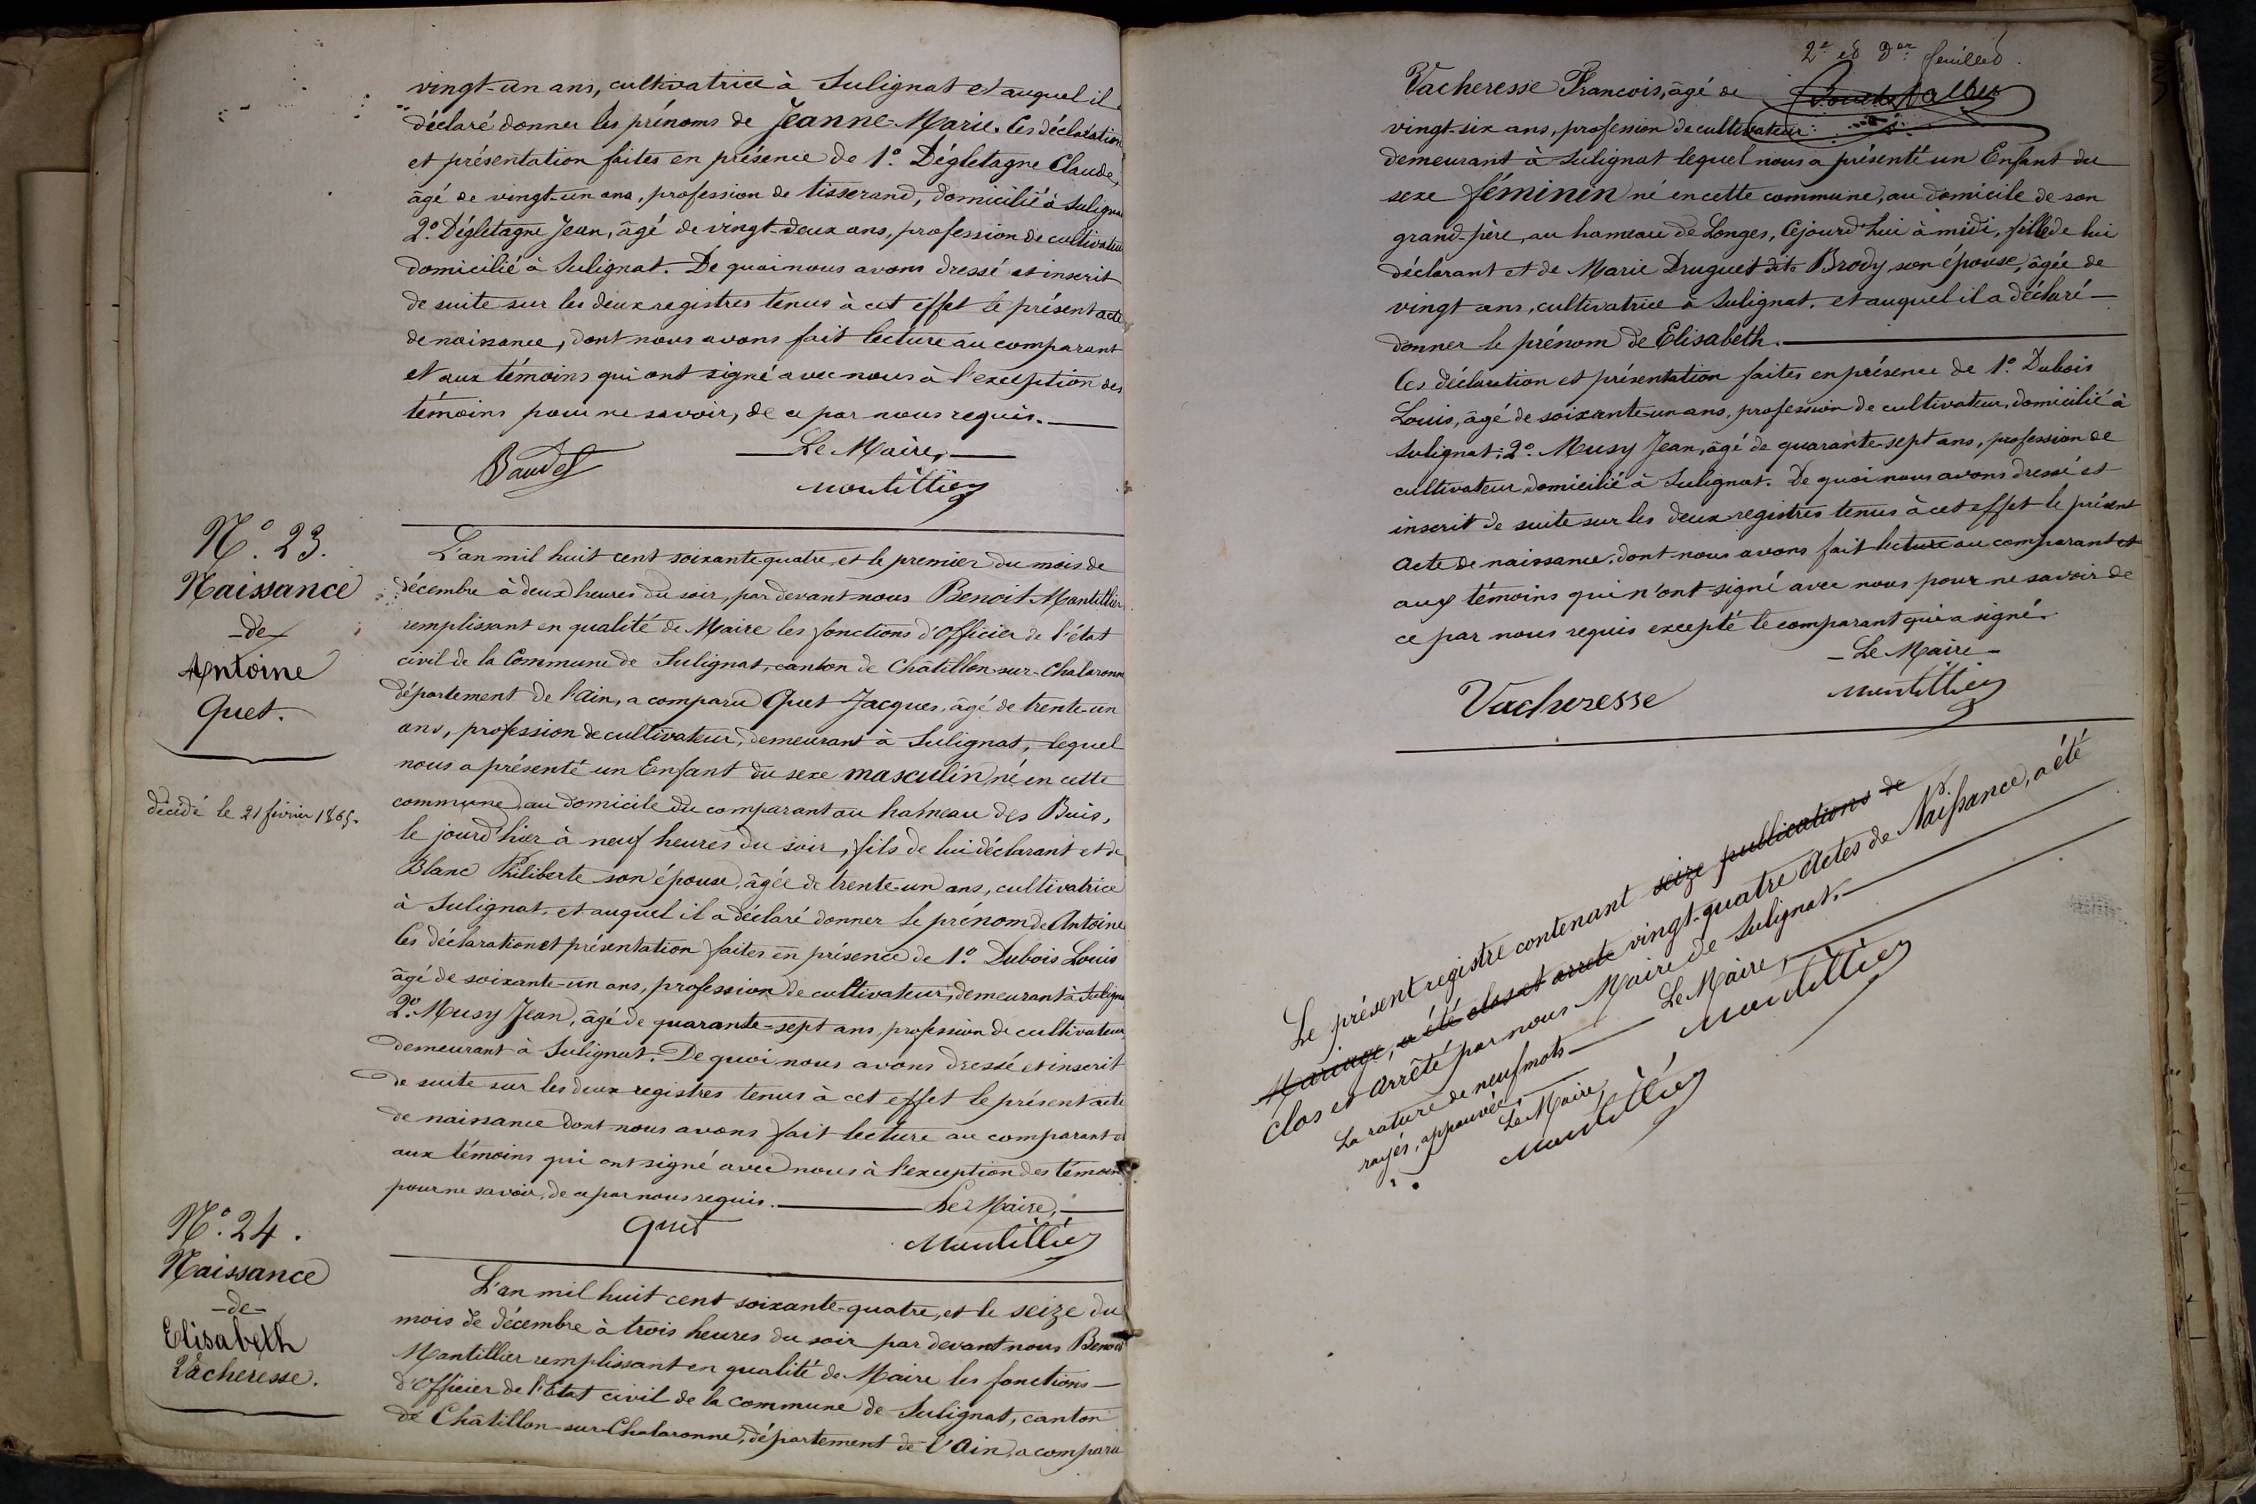 vingt-un ans, cultivatrice à Sulignat et auquel il
déclaré donner les prénoms de Jeanne-Marie. Ces déclaration
et présentation faites en présence de 1° Dégletagne Claude,
âgé de vingt-un ans, profession de tisserand, domicilié à Sulignat
2° Dégletagne Jean, âgé de vingt-deux ans, profession de cultivateur
domicilié à Sulignat. De quoi nous avons dressé et inscrit
de suite sur les deux registres tenus à cet effet le présent acte
de naissance, dont nous avons fait lecture au comparant
et aux témoins qui ont signé avec nous à l'exception des
témoins pour ne savoir, de ce par nous requis.
Le Maire,
Baudet
Montillier
N° 23.
Naissance
de
Antoine
Quet.
décédé le 21 février 1865.
L'an mil huit cent soixante quatre, et le premier du mois de
décembre à deux heures du soir, par devant nous Benoit Mantillier
remplissant en qualité de Maire les fonctions d'Officier de l'état
civil de la Commune de Sulignat, canton de Châtillon-sur-Chalaronne
département de l'Ain, a comparu Quet Jacques, âgé de trente-un
ans, profession de cultivateur, demeurant à Sulignat, lequel
nous a présenté un Enfant du sexe masculin né en cette
commune, au domicile du comparant au hameau des Buis,
le jourd'hier à neuf heures du soir, fils de lui déclarant et de
Blanc Philiberte son épouse, âgée de trente-un ans, cultivatrice
à Sulignat, et auquel il a déclaré donner le prénom de Antoine
Ces déclaration et présentation faites en présence de 1° Dubois Louis
âgé de soixante-un ans, profession de cultivateur, demeurant à Sulignat
2° Musy Jean, âgé de quarante-sept ans, profession de cultivateur,
demeurant à Sulignat. De quoi nous avons dressé et inscrit
de suite sur les deux registres tenus à cet effet le présent acte
de naissance dont nous avons fait lecture au comparant et
aux témoins qui ont signé avec nous à l'exception des témoins
pour ne savoir, de ce par nous requis. Le Maire,
Quet
Montillier
N° 24.
Naissance
-de-
Elisabeth
Vacheresse.
L'an mil huit cent soixante-quatre, et le seize du
mois de décembre à trois heures du soir par devant nous Benoit
Mantillier remplissant en qualité de Maire les fonctions
d'Officier de l'Etat civil de la commune de Sulignat, canton
de Châtillon-sur-Chalaronne, département de l'Ain, a comparu
2e et Der feuillet.
Vacheresse Francois, âgé de
vingt-six ans, profession de cultivateur
demeurant à Sulignat lequel nous a présenté un Enfant du
sexe féminin né en cette commune, au domicile de son
grand-père, au hameau de Longes, Cejourd'hui à midi, fille de lui
déclarant et de Marie Druguet dite Brody, son épouse, âgée de
vingt ans, cultivatrice à Sulignat, et auquel il a déclaré
donner le prénom de Elisabeth.
Ces déclaration et présentation faites en présence de 1° Dubois
Louis, âgé de soixante-un ans, profession de cultivateur, domicilié à
Sulignat; 2° Musy Jean, âgé de quarante-sept ans, profession de
cultivateur, domicilié à Sulignat. De quoi nous avons dressé et
inscrit de suite sur les deux registres tenus à cet effet le présent
Acte de naissance, dont nous avons fait lecture au comparant et
aux témoins qui n'ont signé avec nous pour ne savoir de
ce par nous requis excepté le comparant qui a signé.
Le Maire
Vacheresse
Montillier
Le présent registre contenant seize publications de
Mariage, a été clos et arreté vingt-quatre Actes de Naissance, a été
clos et arrêté par nous Maire de Sulignat.
Le Maire,
Montillier
La rature de neuf mots
rayés, appouvée,
Le Maire,
Montillier